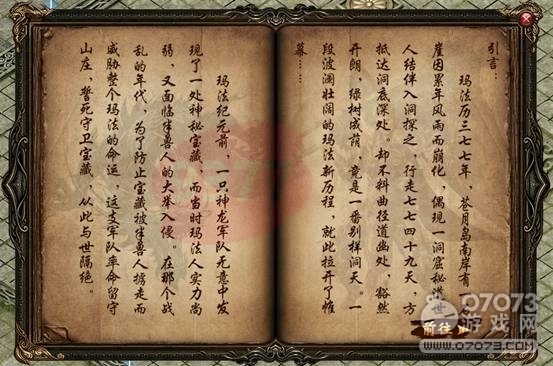 引言：
玛法历三七七年，苍月岛南岸有
崖因累年风雨而崩化，偶现一洞窟秘道，世
人结伴入洞探之，行走七七四十九天，方
抵达洞底深处。却不料曲径通幽处，豁然
开朗，绿树成荫，竟是一番别样洞天。一
段波澜壮阔的玛法新历程，就此拉开了帷
幕……
玛法纪元前，一只神龙军队无意中发
现了一处神秘宝藏，而当时玛法人实力尚
弱，又面临半兽人的大举入侵。在那个战
乱的年代，为了防止宝藏被半兽人掳走而
威胁整个玛法的命运，这支军队率命留守
山庄，誓死守卫宝藏，从此与世隔绝。
前往
07073
游戏网